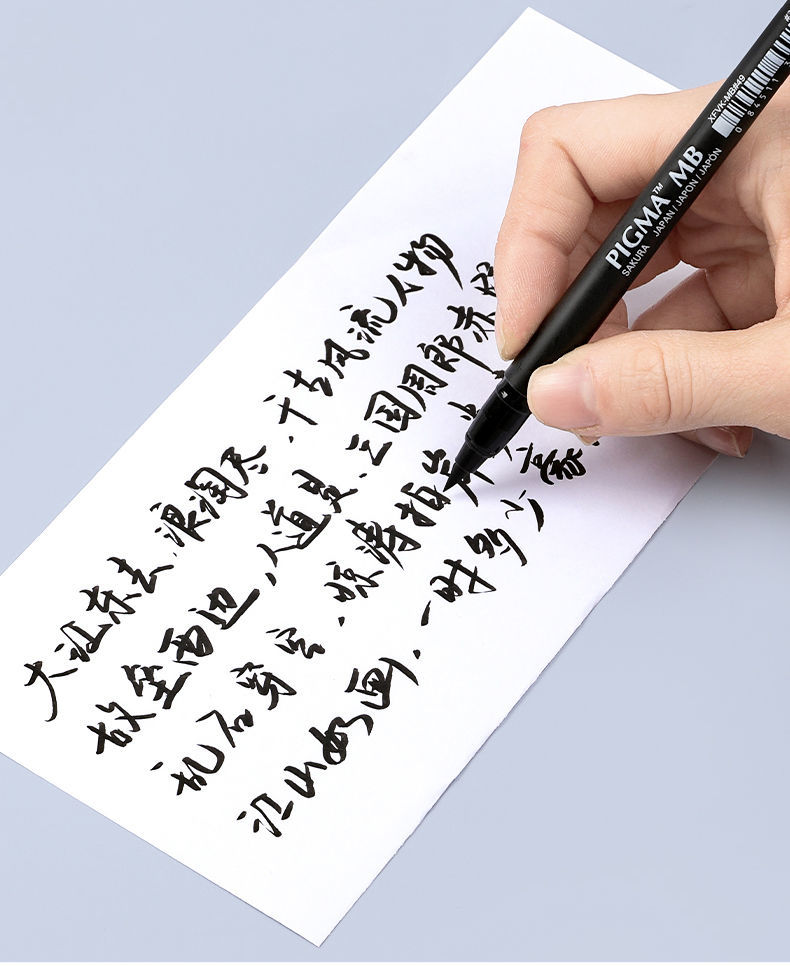 大江东去，浪淘尽，千古风流人物
故垒西边，人道是，三国周郎赤
乱石穿空，惊涛拍岸
江山如画，一时多少豪
PIGMA™ MB
SAKURA JAPAN / JAPON / JAPÓN
XFVK-MB#49
0 84511 3